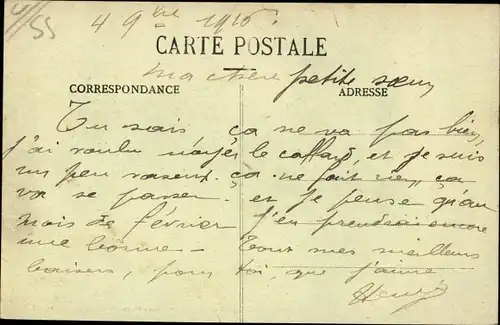 4/55
4 9bre 1916
CARTE POSTALE
ma chère petite sœur
CORRESPONDANCE
ADRESSE
Tu sais ça ne va pas bien,
j'ai voulu noyer le caffard, et je suis
un peu rasent. ça ne fait rien, ça
va se passer. et je pense qu'au
mois de février j'en prendrai encore
une bonne - Tous mes meilleurs
baisers, pour toi, que j'aime
Henri